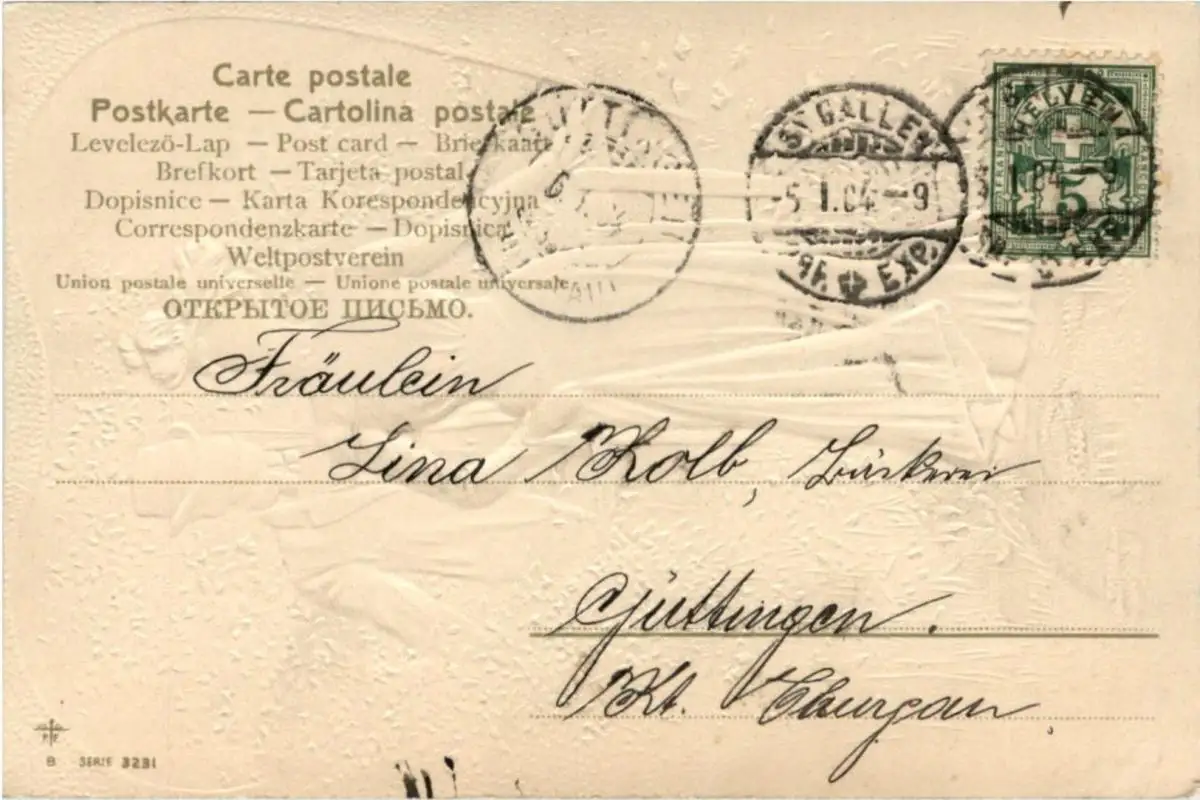 Carte postale
Postkarte — Cartolina postale
Levelező-Lap — Post card — Briefkaart
Brefkort — Tarjeta postal
Dopisnice — Karta Korespondencyjna
Correspondenzkarte — Dopisnica
Weltpostverein
Union postale universelle — Unione postale universale
ОТКРЫТОЕ ПИСЬМО.
ST. GALLEN
-5.I.04.-9
EXP.
HELVETIA
5
Fräulein
Lina Kolb, Bäckerei
Güttingen.
Kt. Thurgau
B SERIE 3231